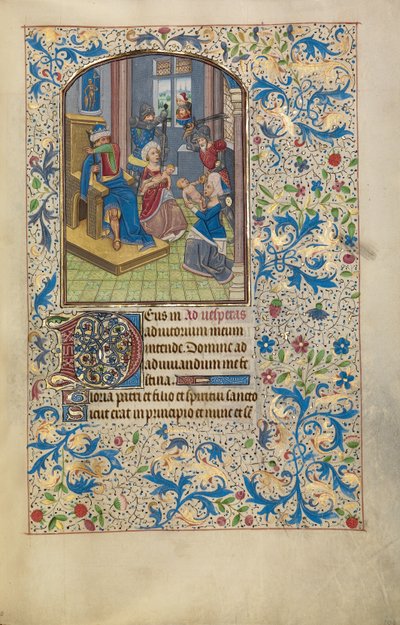 Deus in Ad uesperas
adiutorium meum
intende. Domine ad
adiuuandum me fes
tina.
Gloria patri et filio et spiritui sancto
Sicut erat in principio et nunc et se